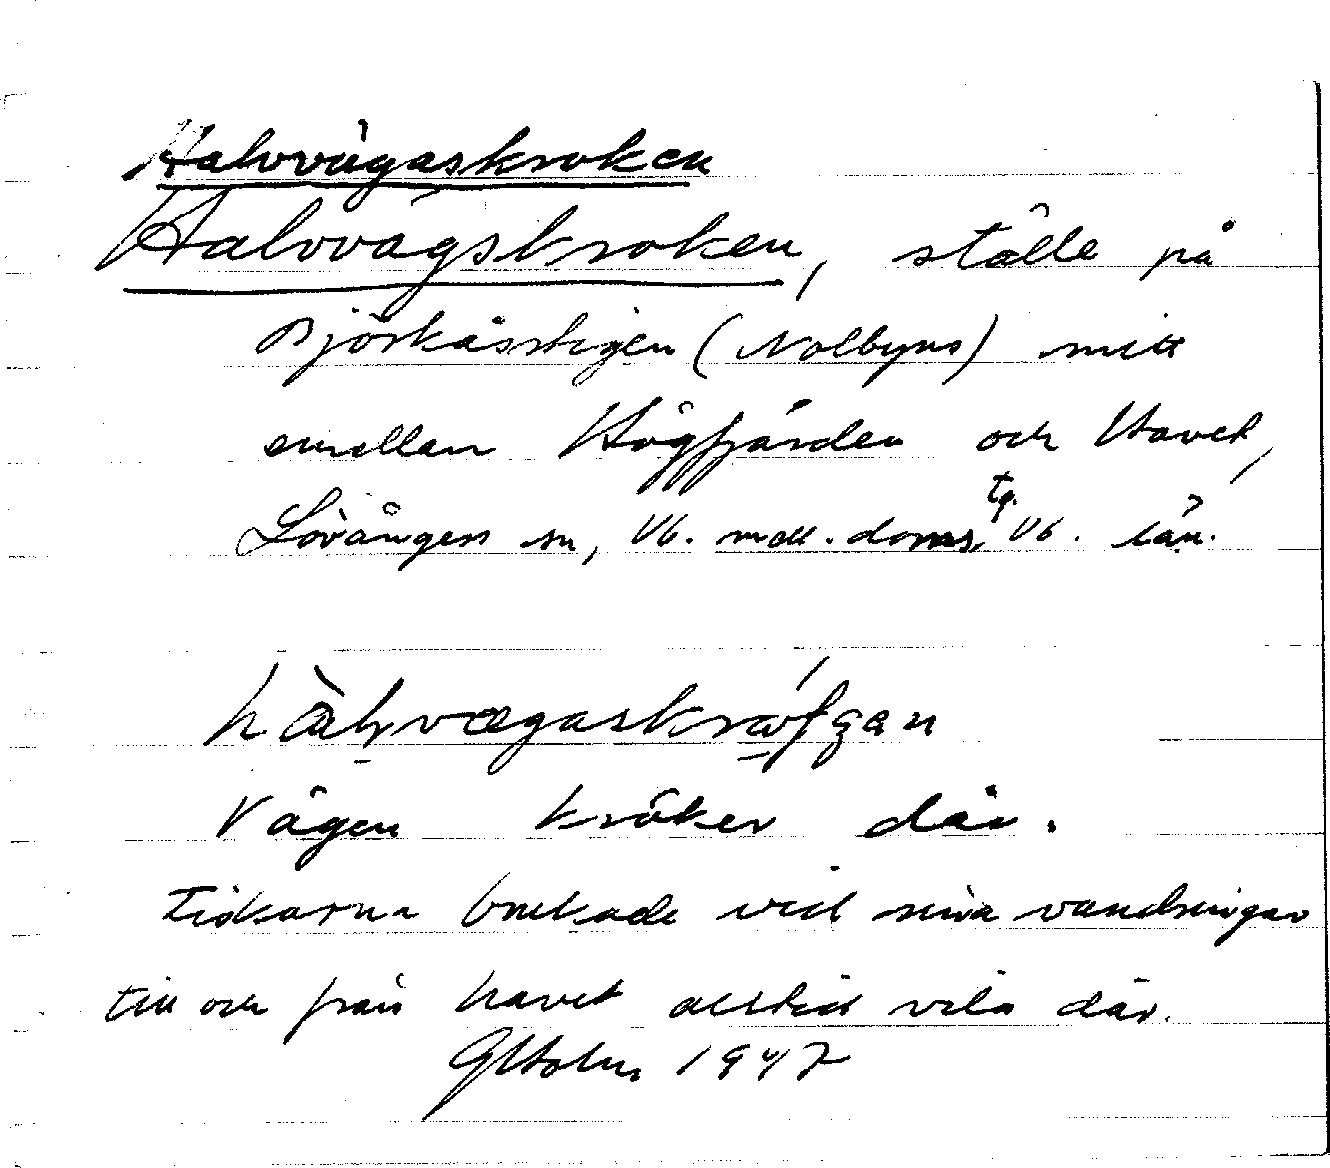 Halvvägaskroken
Halvvägskroken, ställe på
Björkåsstigen (Nolbyns) mitt
emellan Högfjärden och Havet,
Lövångers sn, Vb. mell. doms. tg. Vb. län.
Vägen kröker där.
brukade vid sina vandringar
till och från havet alltid vila där.
GHolm 1947